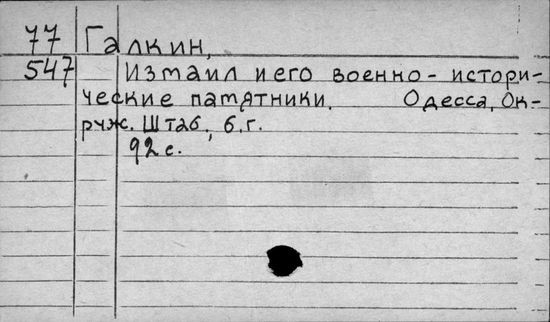 77 Галкин,
547 Измаил и его военно-истори-
ческие памятники. Одесса, Ок-
руж. Штаб, б.г.
92 с.